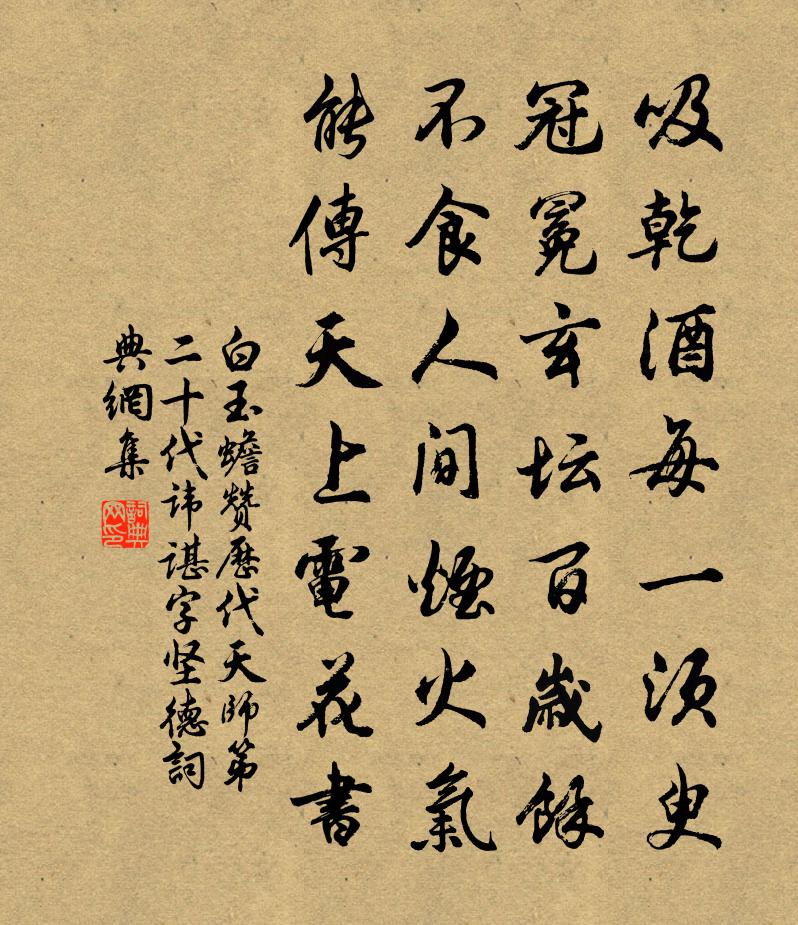 吸乾酒每一須臾
冠冕玄坛百歲餘
不食人间煙火氣
能傳天上電花書
白玉蟾赞歷代天師第
二十代讳谌字坚德詞
典網集
詞典
网印